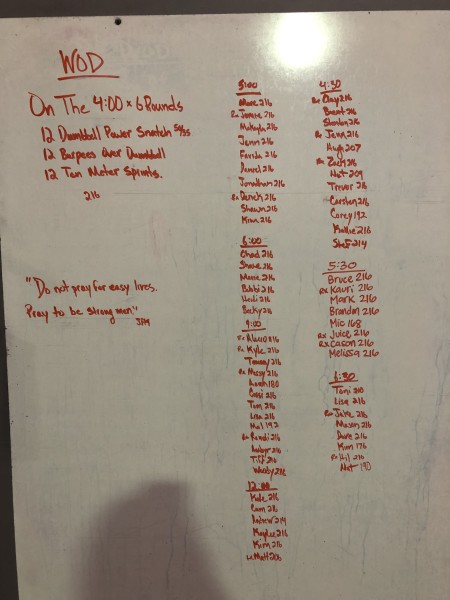 WOD
On The 4:00 x 6 Rounds
12 Dumbbell Power Snatch 50/35
12 Burpees Over Dumbbell
12 Ten Meter Sprints.
216
"Do not pray for easy lives.
Pray to be strong men."
JFK
5:00
Marc 216
Rx 216
Makayla 216
Jenn 216
216
Daniel 216
Jonathan 216
Rx Derick 216
Shawn 216
Kina 216
6:00
Chad 216
Shane 216
Marie 216
Bobbi 216
Heidi 216
Becky 216
9:00
Rx 216
Rx Kyle 216
Tammy 216
Rx Missy 216
Aarah 180
Cassi 216
Tom 216
Lisa 216
Hal 192
Rx Randi 216
216
Tiff 216
Whitty 216
12:00
Kate 216
Cam 216
Andrew 214
Kaylee 216
Kim 216
Matt 206
4:30
Rx Clay 216
Brent 216
Shenlon 216
Rx Jenn 216
Hugh 207
Rx Zach 216
Nat 209
Trevor 216
Carsten 216
Corey 192
Kollie 216
Stef 214
5:30
Bruce 216
Rx Kauri 216
Mark 216
Brandon 216
Mio 168
Rx Juice 216
Rx Cason 216
Melissa 216
6:30
Toni 210
Lisa 216
Rx Jake 216
Mason 216
Dave 216
Kim 176
Rx Hil 216
Nat 190